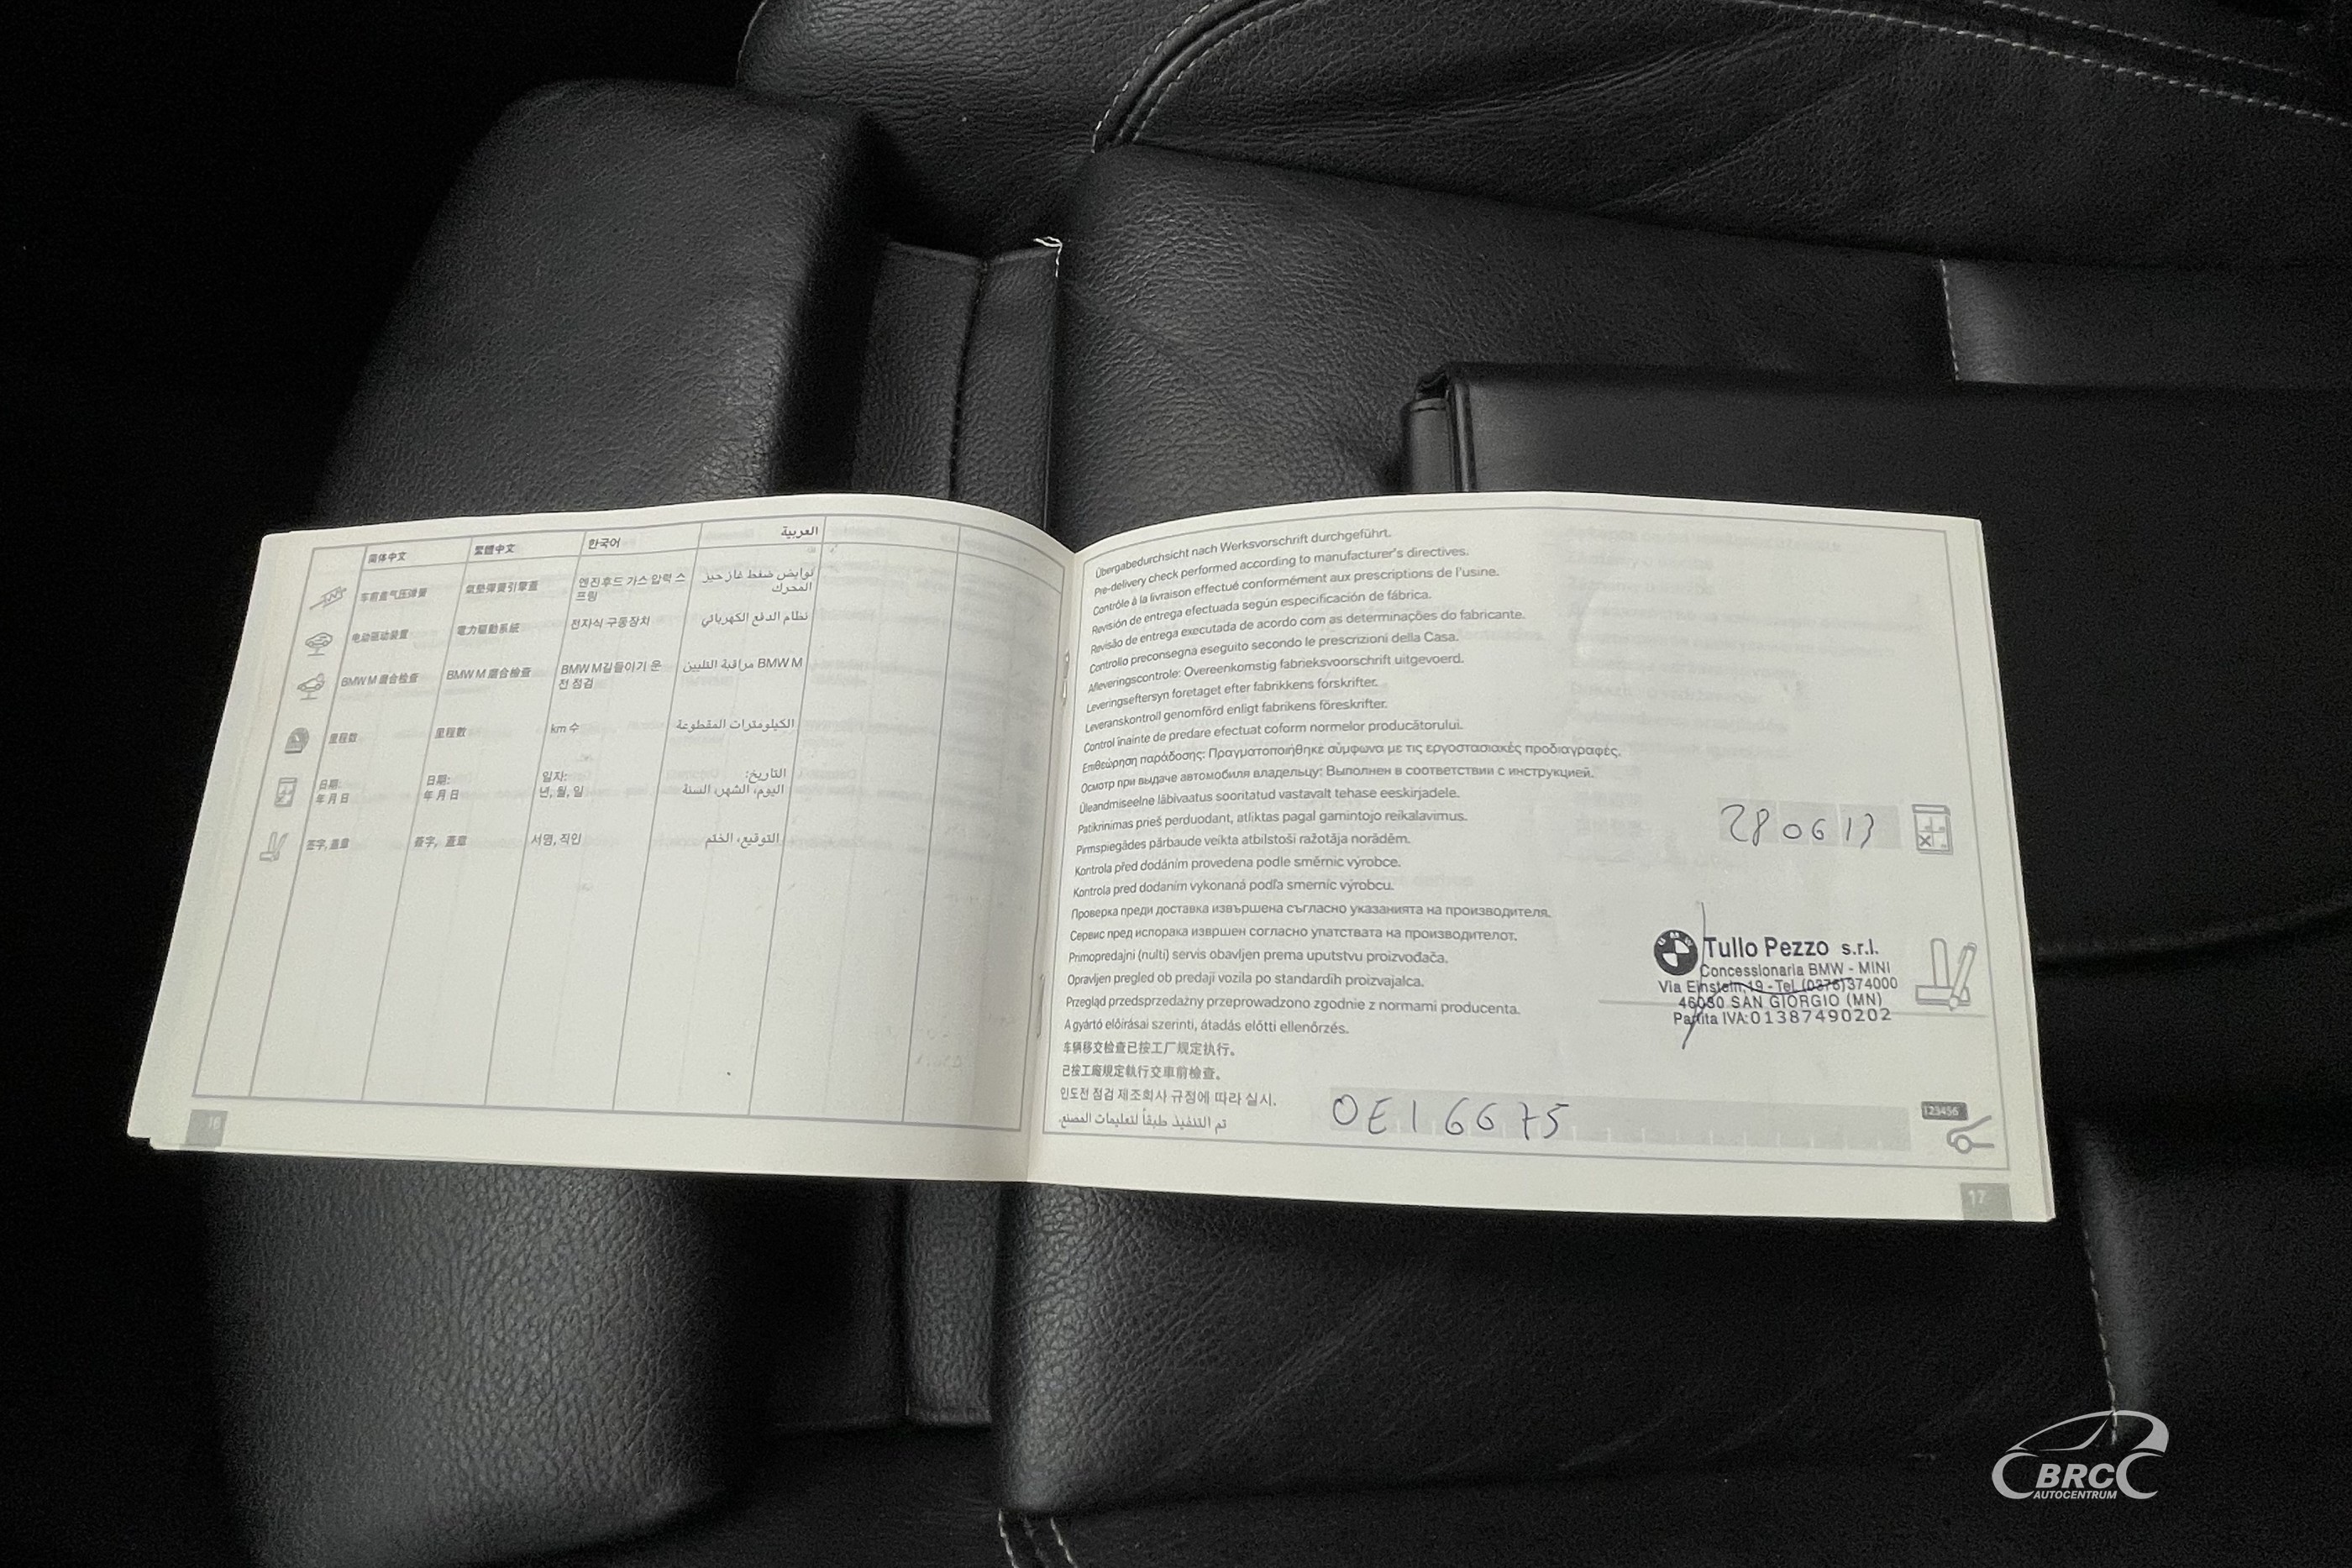 简体中文 繁體中文 한국어 العربية
车前盖气压弹簧 氣墊彈簧引擎蓋 엔진후드 가스 압력 스프링 نوابض ضغط غاز حيز المحرك
电动驱动装置 電力驅動系統 전자식 구동장치 نظام الدفع الكهربائي
BMW M 磨合检查 BMW M 磨合檢查 BMW M길들이기 운전 점검 BMW M مراقبة التليين
里程数 里程數 km 수 الكيلومترات المقطوعة
日期: 日期: 일자: التاريخ:
年 月 日 年 月 日 년, 월, 일 اليوم، الشهر، السنة
签字, 盖章 簽字, 蓋章 서명, 직인 التوقيع، الختم
16
Übergabedurchsicht nach Werksvorschrift durchgeführt.
Pre-delivery check performed according to manufacturer's directives.
Contrôle à la livraison effectué conformément aux prescriptions de l'usine.
Revisión de entrega efectuada según especificación de fábrica.
Revisão de entrega executada de acordo com as determinações do fabricante.
Controllo preconsegna eseguito secondo le prescrizioni della Casa.
Afleveringscontrole: Overeenkomstig fabrieksvoorschrift uitgevoerd.
Leveringseftersyn foretaget efter fabrikkens forskrifter.
Leveranskontroll genomförd enligt fabrikens föreskrifter.
Control înainte de predare efectuat coform normelor producătorului.
Επιθεώρηση παράδοσης: Πραγματοποιήθηκε σύμφωνα με τις εργοστασιακές προδιαγραφές.
Осмотр при выдаче автомобиля владельцу: Выполнен в соответствии с инструкцией.
Üleandmiseelne läbivaatus sooritatud vastavalt tehase eeskirjadele.
Patikrinimas prieš perduodant, atliktas pagal gamintojo reikalavimus.
Pirmspiegādes pārbaude veikta atbilstoši ražotāja norādēm.
Kontrola před dodáním provedena podle směrnic výrobce.
Kontrola pred dodaním vykonaná podľa smerníc výrobcu.
Проверка преди доставка извършена съгласно указанията на производителя.
Сервис пред испорака извршен согласно упатствата на производителот.
Primopredajni (nulti) servis obavljen prema uputstvu proizvođača.
Opravljen pregled ob predaji vozila po standardih proizvajalca.
Przegląd przedsprzedażny przeprowadzono zgodnie z normami producenta.
A gyártó előírásai szerinti, átadás előtti ellenőrzés.
车辆移交检查已按工厂规定执行。
已按工廠規定執行交車前檢查。
인도전 점검 제조회사 규정에 따라 실시.
تم التنفيذ طبقاً لتعليمات المصنع.
28 06 13
BMW Tullo Pezzo s.r.l.
Concessionaria BMW - MINI
Via Einstein,19 - Tel. (0376)374000
46030 SAN GIORGIO (MN)
Partita IVA:01387490202
0E16675
123456
17
BRC
AUTOCENTRUM